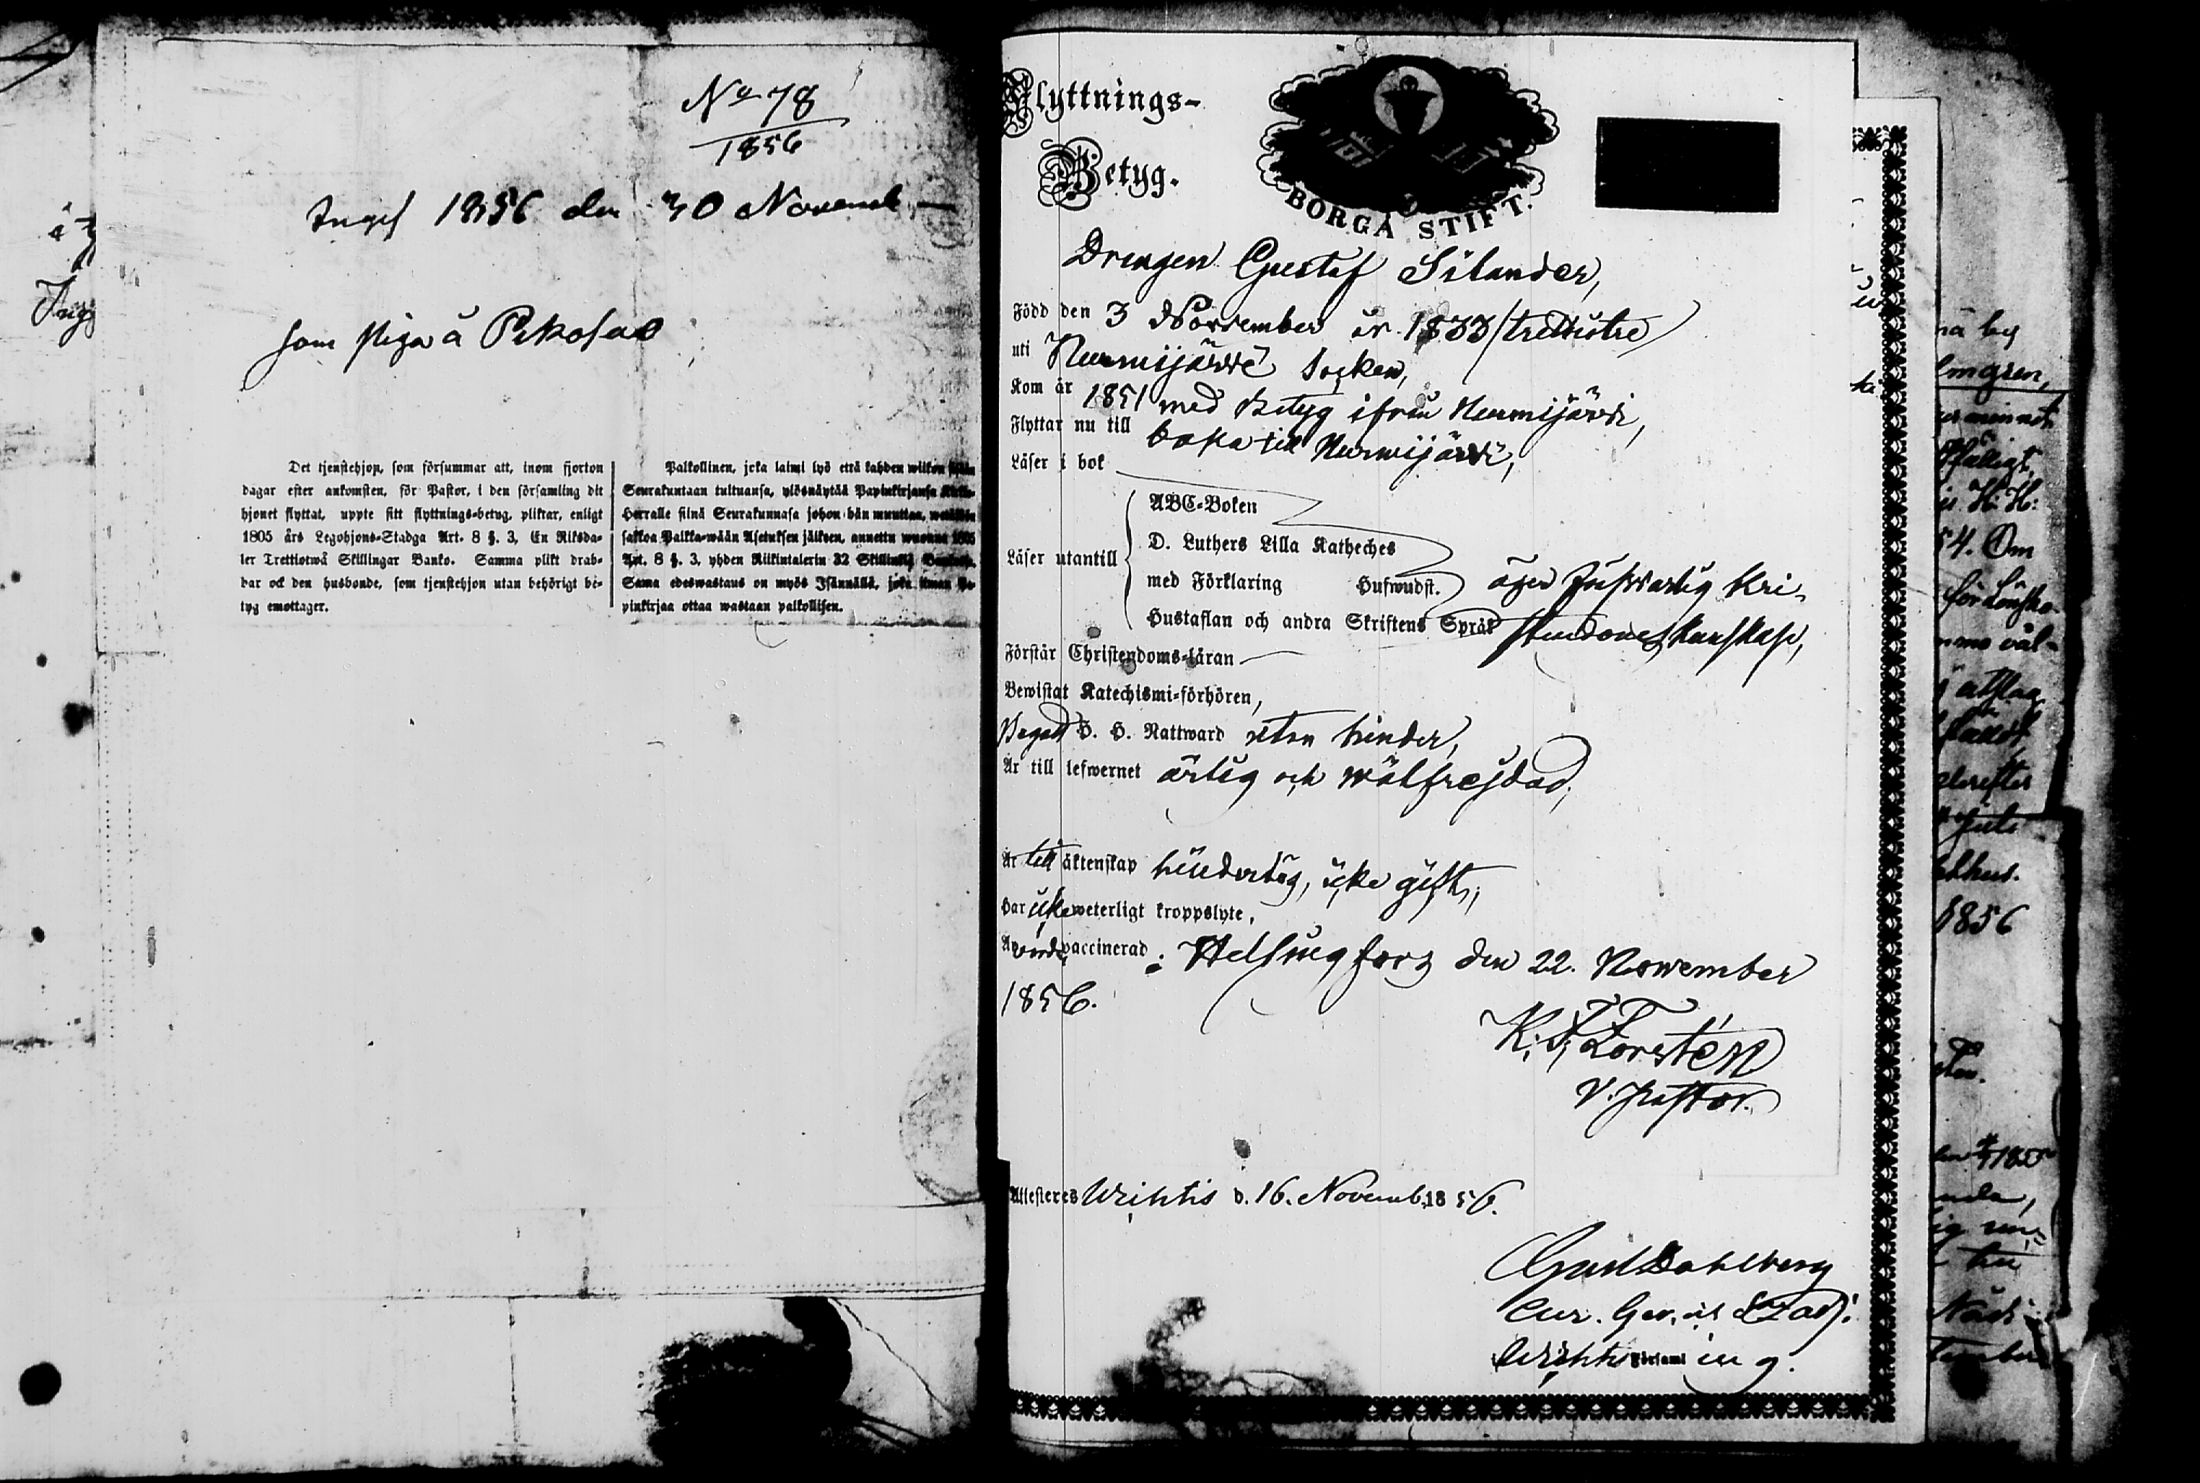 No 78
1856
Ingif 1856 den 30 Novemb
som piga å
Det tjenstehjon, som försummar att, inom fjorton
dagar efter ankomsten, för Pastor, i den församling dit
hjonet flyttat, uppte sitt flyttnings-betyg, pliktar, enligt
1805 års Legohjons-Stadga Art. 8 §. 3, En Riksda-
ler Trettiotwå Skillingar Banko. Samma plikt drab-
bar ock den husbonde, som tjenstehjon utan behörigt be-
tyg emottager.
Palkollinen, joka laimi lyö että kahden wiikon
Seurakuntaan tultuansa, ylösnäytää Papinkirjansa Kirkko-
Herralle siinä Seurakunnasa johon hän muuttaa, wetäköön
sakkoa Palkka-wään Asetuksen jälkeen, annettu wuonna 1805
Art. 8 §. 3, yhden Riikintalerin 32 Skillinkiä
Sama edeswastaus on myös Isännällä, joka ilman Pa-
pinkirjaa ottaa wastaan palkollisen.
Flyttnings-
Betyg.
BORGÅ STIFT.
Drengen Gustaf Silander,
Född den 3 November år 1833/trettiotre
uti Nurmijärvi Socken,
Kom år 1851 med Betyg ifrån Nurmijärvi,
Flyttar nu till baka till Nurmijärvi,
Läser i bok
ABC-Boken
D. Luthers Lilla Katheches
Läser utantill
med Förklaring Hufwudst. äger försvarlig Kri-
Hustaflan och andra Skriftens Språk stendoms kunskap,
Förstår Christendoms-läran
Bewistat Katechismi-förhören,
Begått H. H. Nattward utan hinder,
Är till lefwernet ärlig och wälfrejdad,
Är till äktenskap hinderlös, icke gift,
Har icke weterligt kroppslyte,
Är vaccinerad; Helsingfors den 22. November
1856.
K. F. Forstén
V. Pastor.
Attesteres Wichtis d. 16. Novemb. 1856.
Gust Dahlberg
Wichtis Församling.